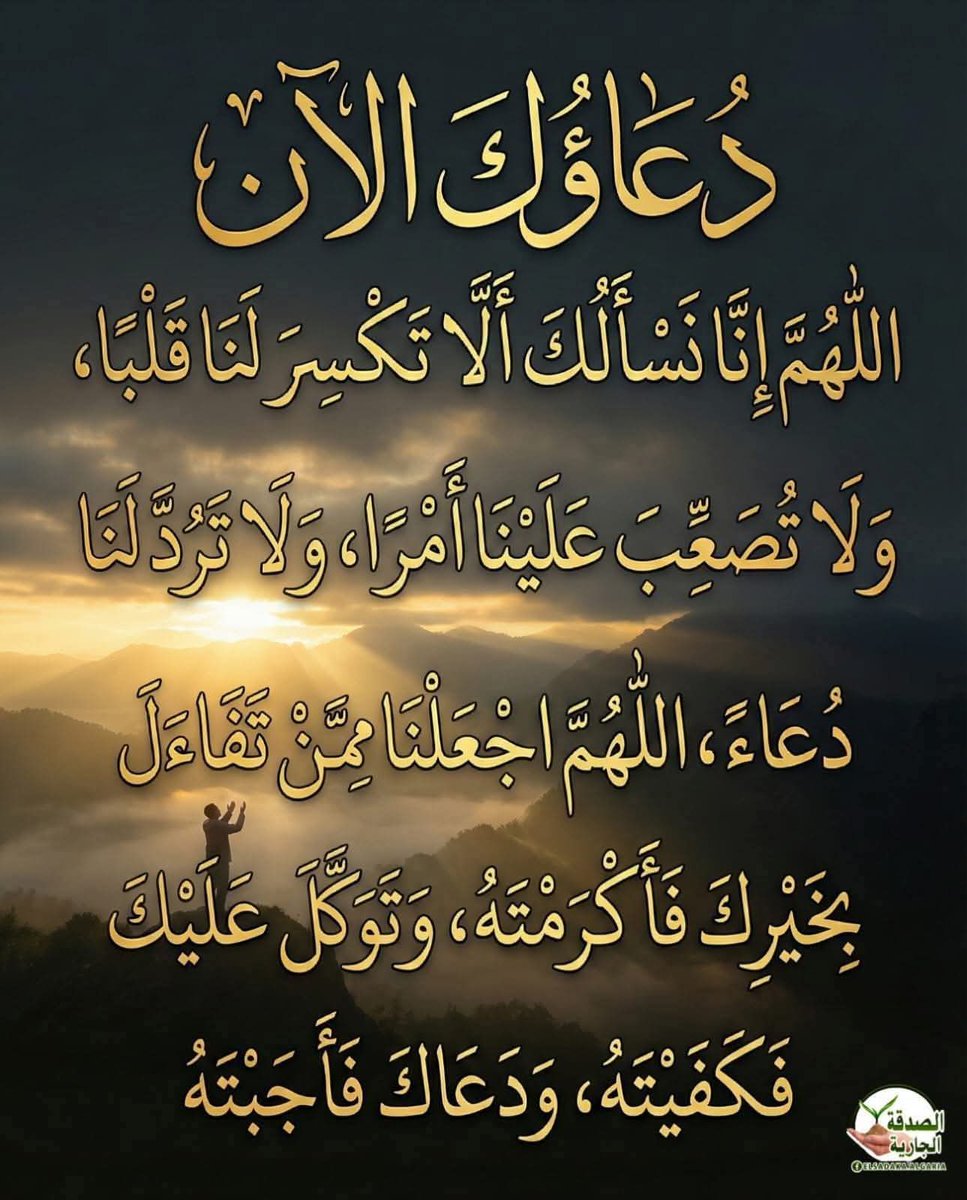 دُعَاؤُكَ الآن
اللّٰهُمَّ إِنَّا نَسْأَلُكَ أَلَّا تَكْسِرَ لَنَا قَلْبًا،
وَلَا تُصَعِّبَ عَلَيْنَا أَمْرًا، وَلَا تَرُدَّ لَنَا
دُعَاءً، اللّٰهُمَّ اجْعَلْنَا مِمَّنْ تَفَاءَلَ
بِخَيْرِكَ فَأَكْرَمْتَهُ، وَتَوَكَّلَ عَلَيْكَ
فَكَفَيْتَهُ، وَدَعَاكَ فَأَجَبْتَهُ
الصدقة
الجارية
ELSADAKA.ALGARIA